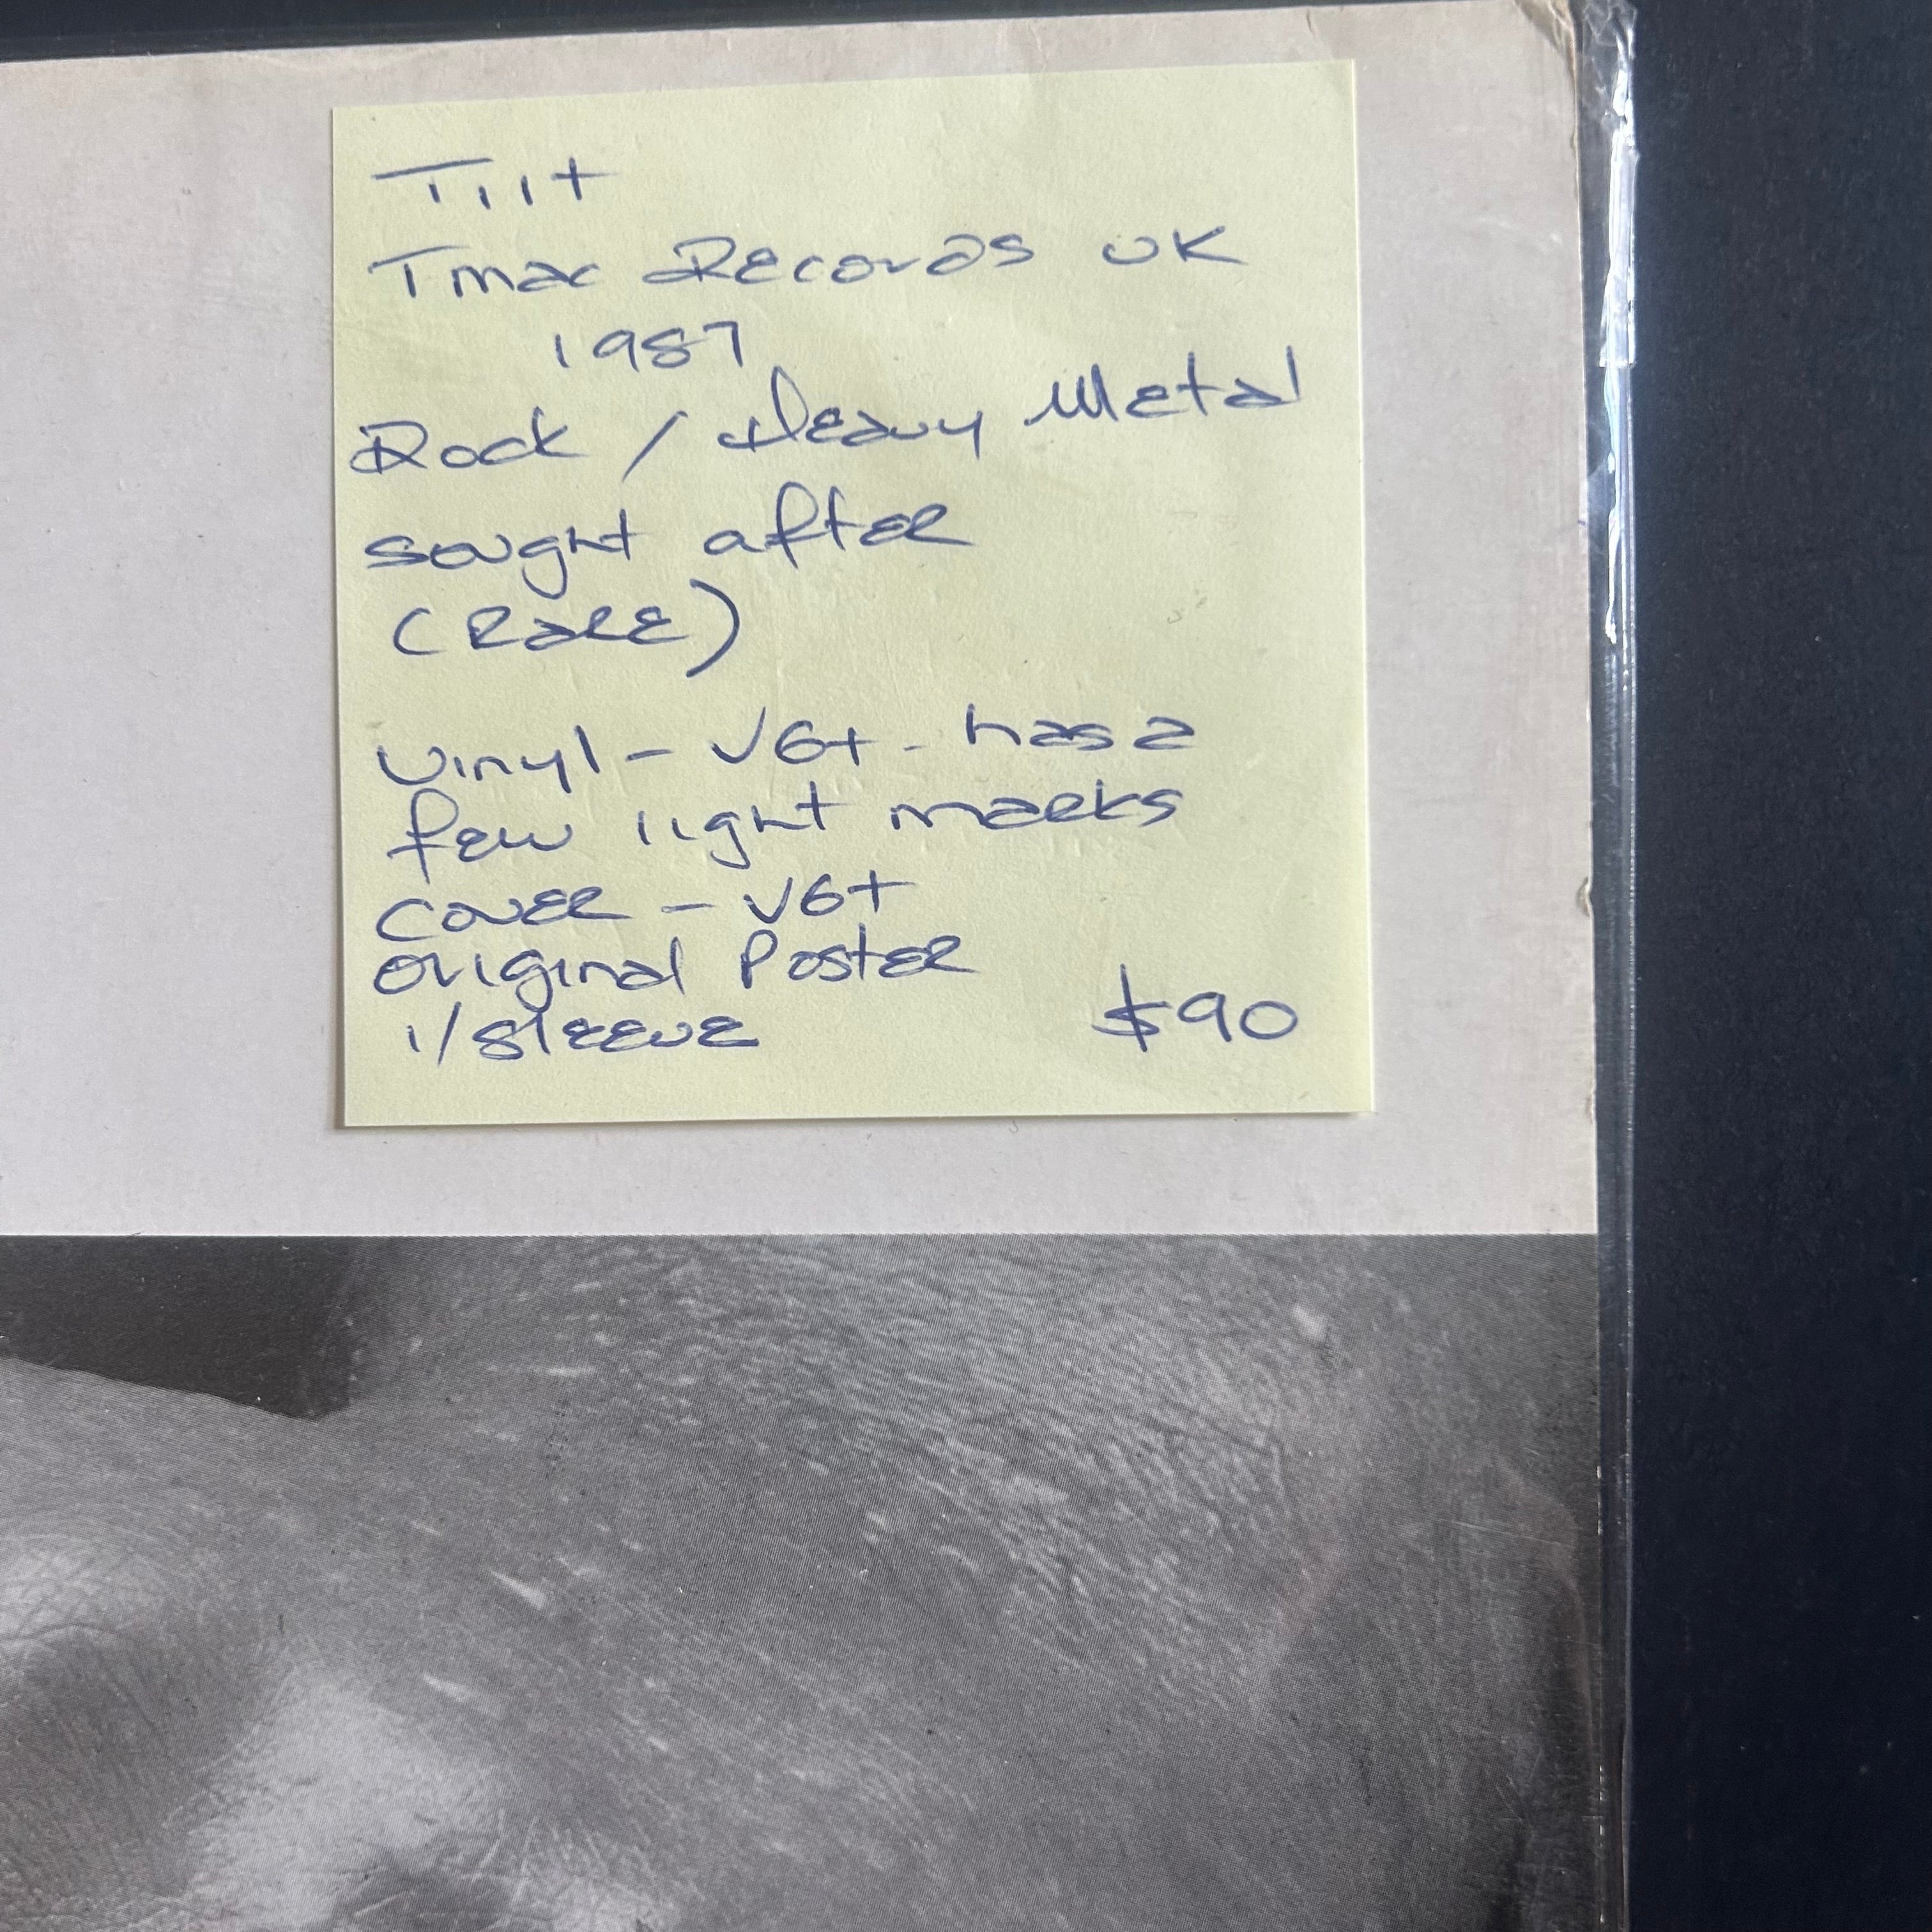 Tilt
Tmac Records UK
1987
Rock / Heavy Metal
sought after
(Rare)
Vinyl - VG+ - has a
few light marks
cover - VG+
original Poster
1/sleeve
$90